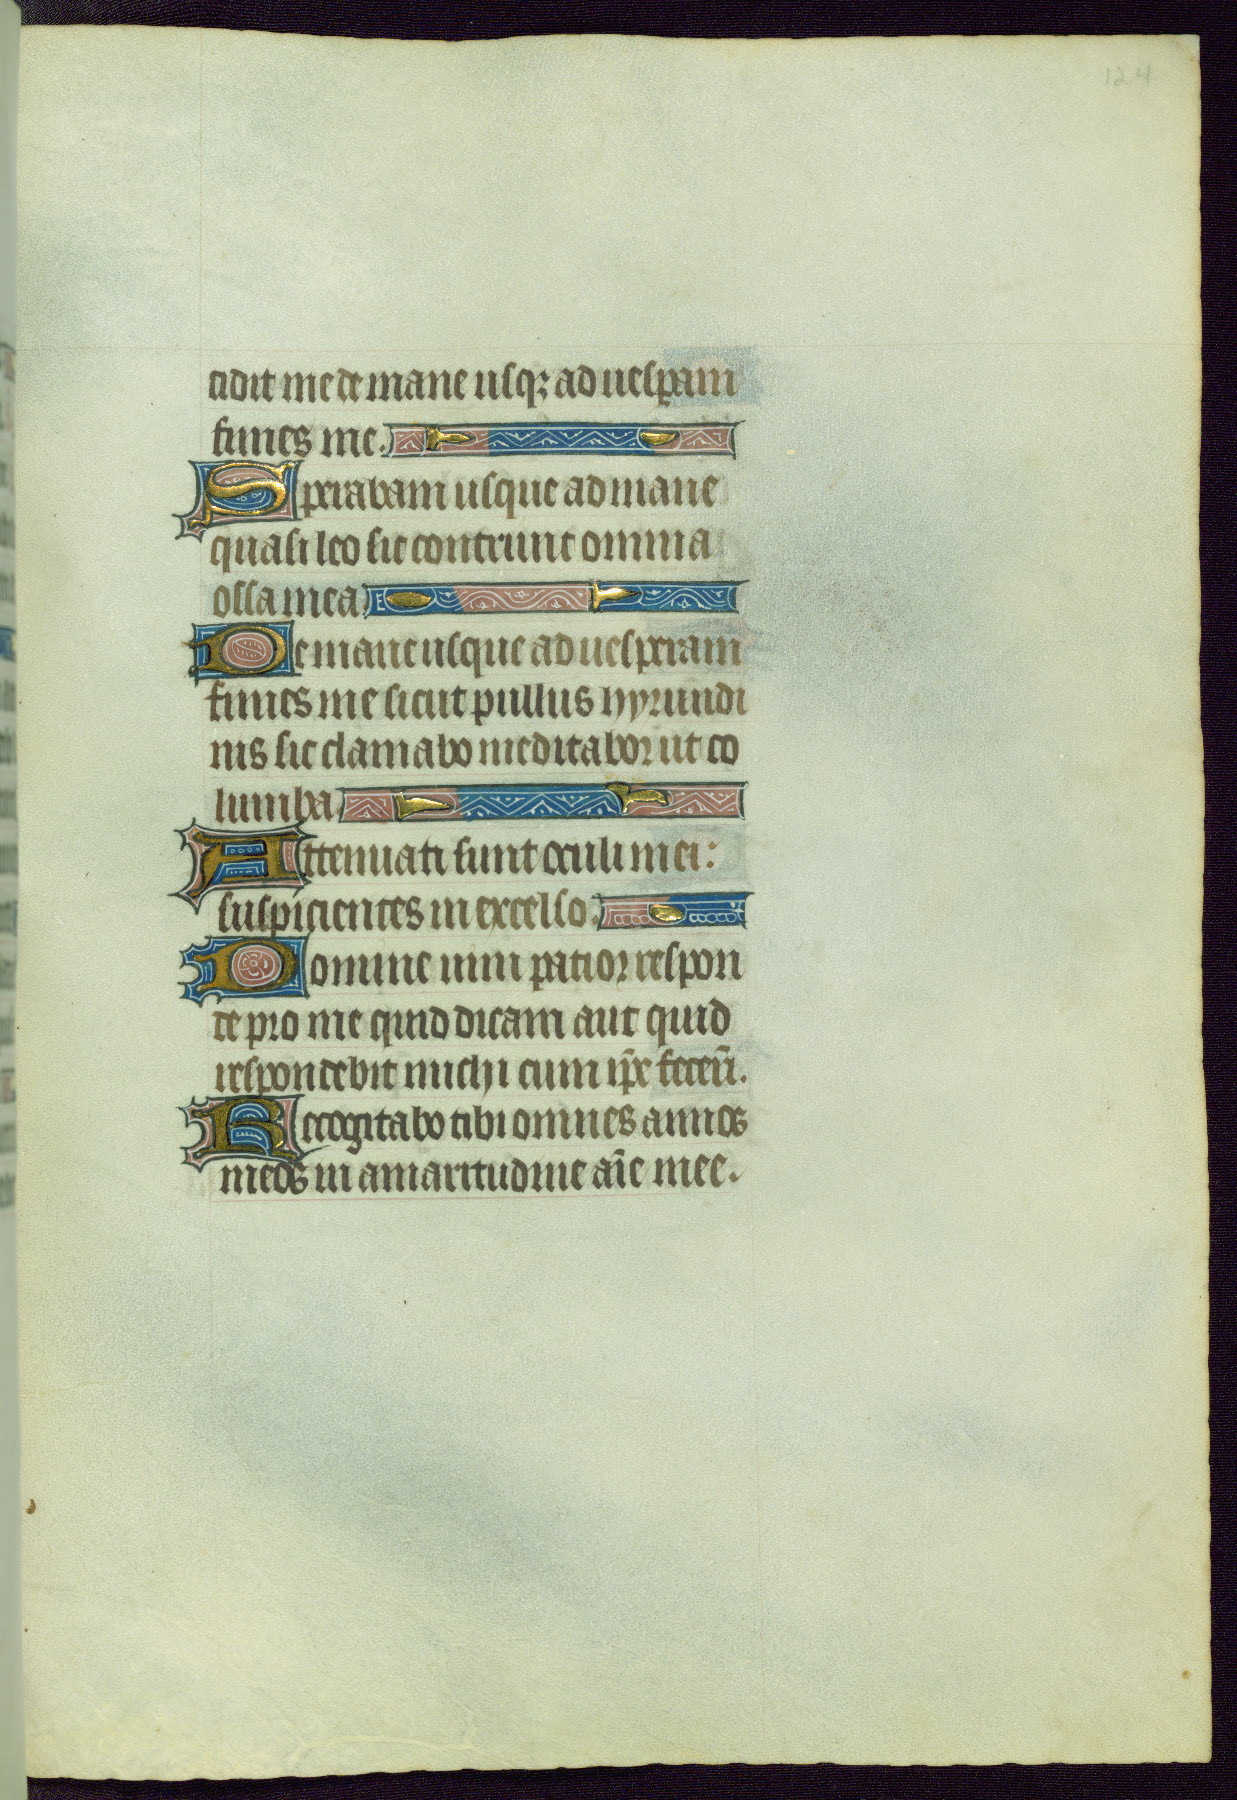 124
cidit me de mane usqꝫ ad uesꝑam
finies me.
Sperabam usque ad mane
quasi leo sic contriuit omnia
ossa mea
De mane usque ad uesperam
finies me sicut pullus hyrundi
nis sic clamabo meditabor ut co
lumba
Attenuati sunt oculi mei:
suspicientes in excelso.
Domine uim patior respon
de pro me quid dicam aut quid
respondebit michi cum ip̄e feceri̅.
Recogitabo tibi omnes annos
meos in amaritudine ai̅e mee.